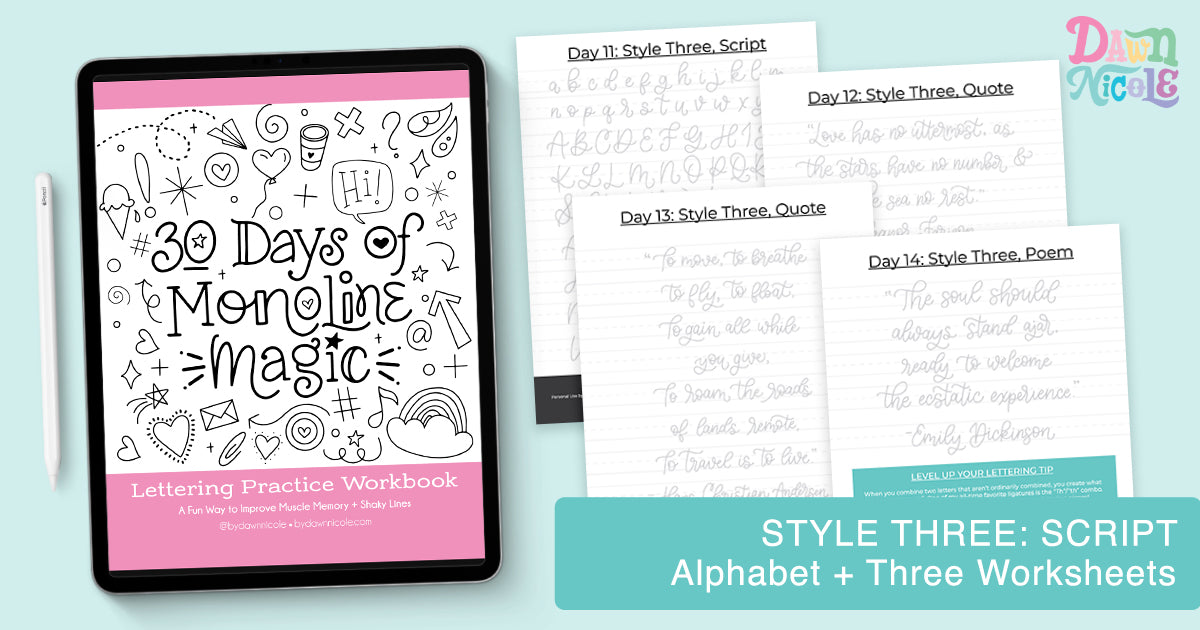 Hi!
30 Days of
Monoline
Magic
#
@
#
Lettering Practice Workbook
A Fun Way to Improve Muscle Memory + Shaky Lines
@bydawnnicole • bydawnnicole.com
Pencil
Day 11: Style Three, Script
a b c d e f g h i j k l m
n o p q r s t u v w x y
A B C D E F G H I
K L L M N O P Q R
Personal Use
Day 12: Style Three, Quote
"Love has no uttermost, as
the stars have no number &
sea no rest."
Day 13: Style Three, Quote
"To move, to breathe
to fly, to float,
To gain all while
you give,
To roam the roads
of lands remote,
To travel is to live."
Hans Christian Andersen
Day 14: Style Three, Poem
"The soul should
always stand ajar,
ready to welcome
the ecstatic experience."
-Emily Dickinson
LEVEL UP YOUR LETTERING TIP
When you combine two letters that aren't ordinarily combined, you create what
of my all-time favorite ligatures is the "Th"/"th" combo.
DAWN
NICOLE
STYLE THREE: SCRIPT
Alphabet + Three Worksheets